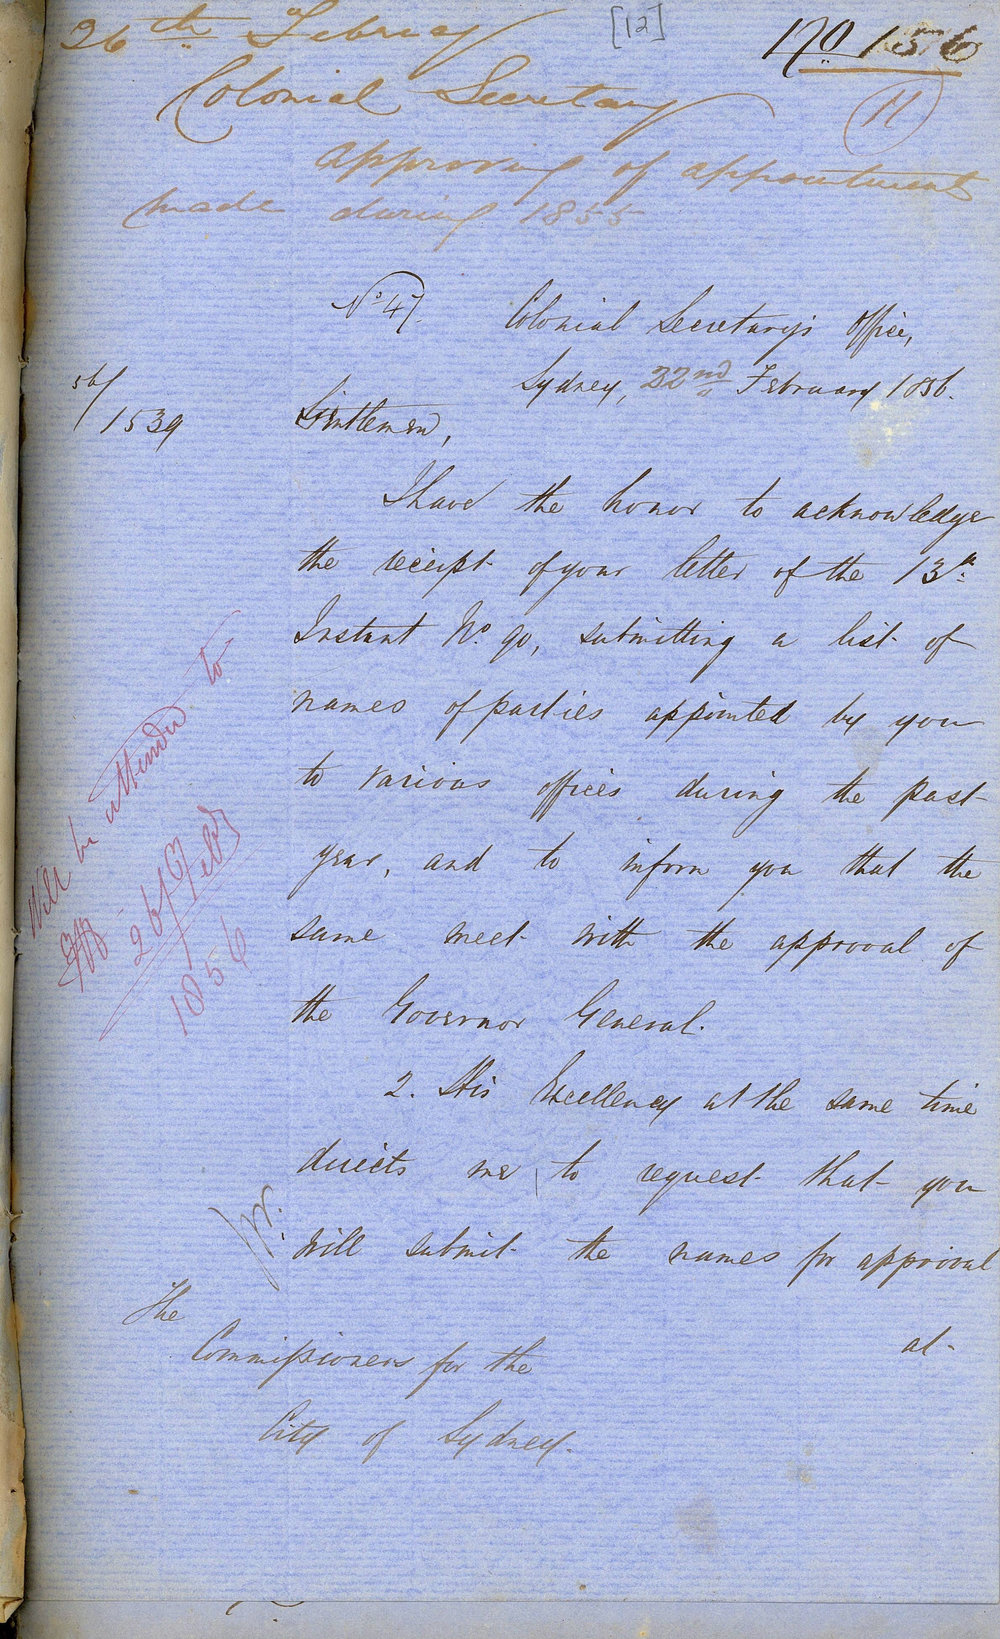 26th February
[12]
170 156
11
Colonial Secretary
approving of appointments
made during 1855
No 47. Colonial Secretary's Office,
Sydney, 22nd February 1856.
56/1539
Gentlemen,
I have the honor to acknowledge
the receipt of your letter of the 13th.
Instant No. 90, submitting a list of
names of parties appointed by you
to various offices during the past
year, and to inform you that the
same meet with the approval of
the Governor General.
2. His Excellency at the same time
directs me to request that you
will submit the names for approval
at
The
Commissioners for the
City of Sydney.
Will be attended to
26/Feb/
1856